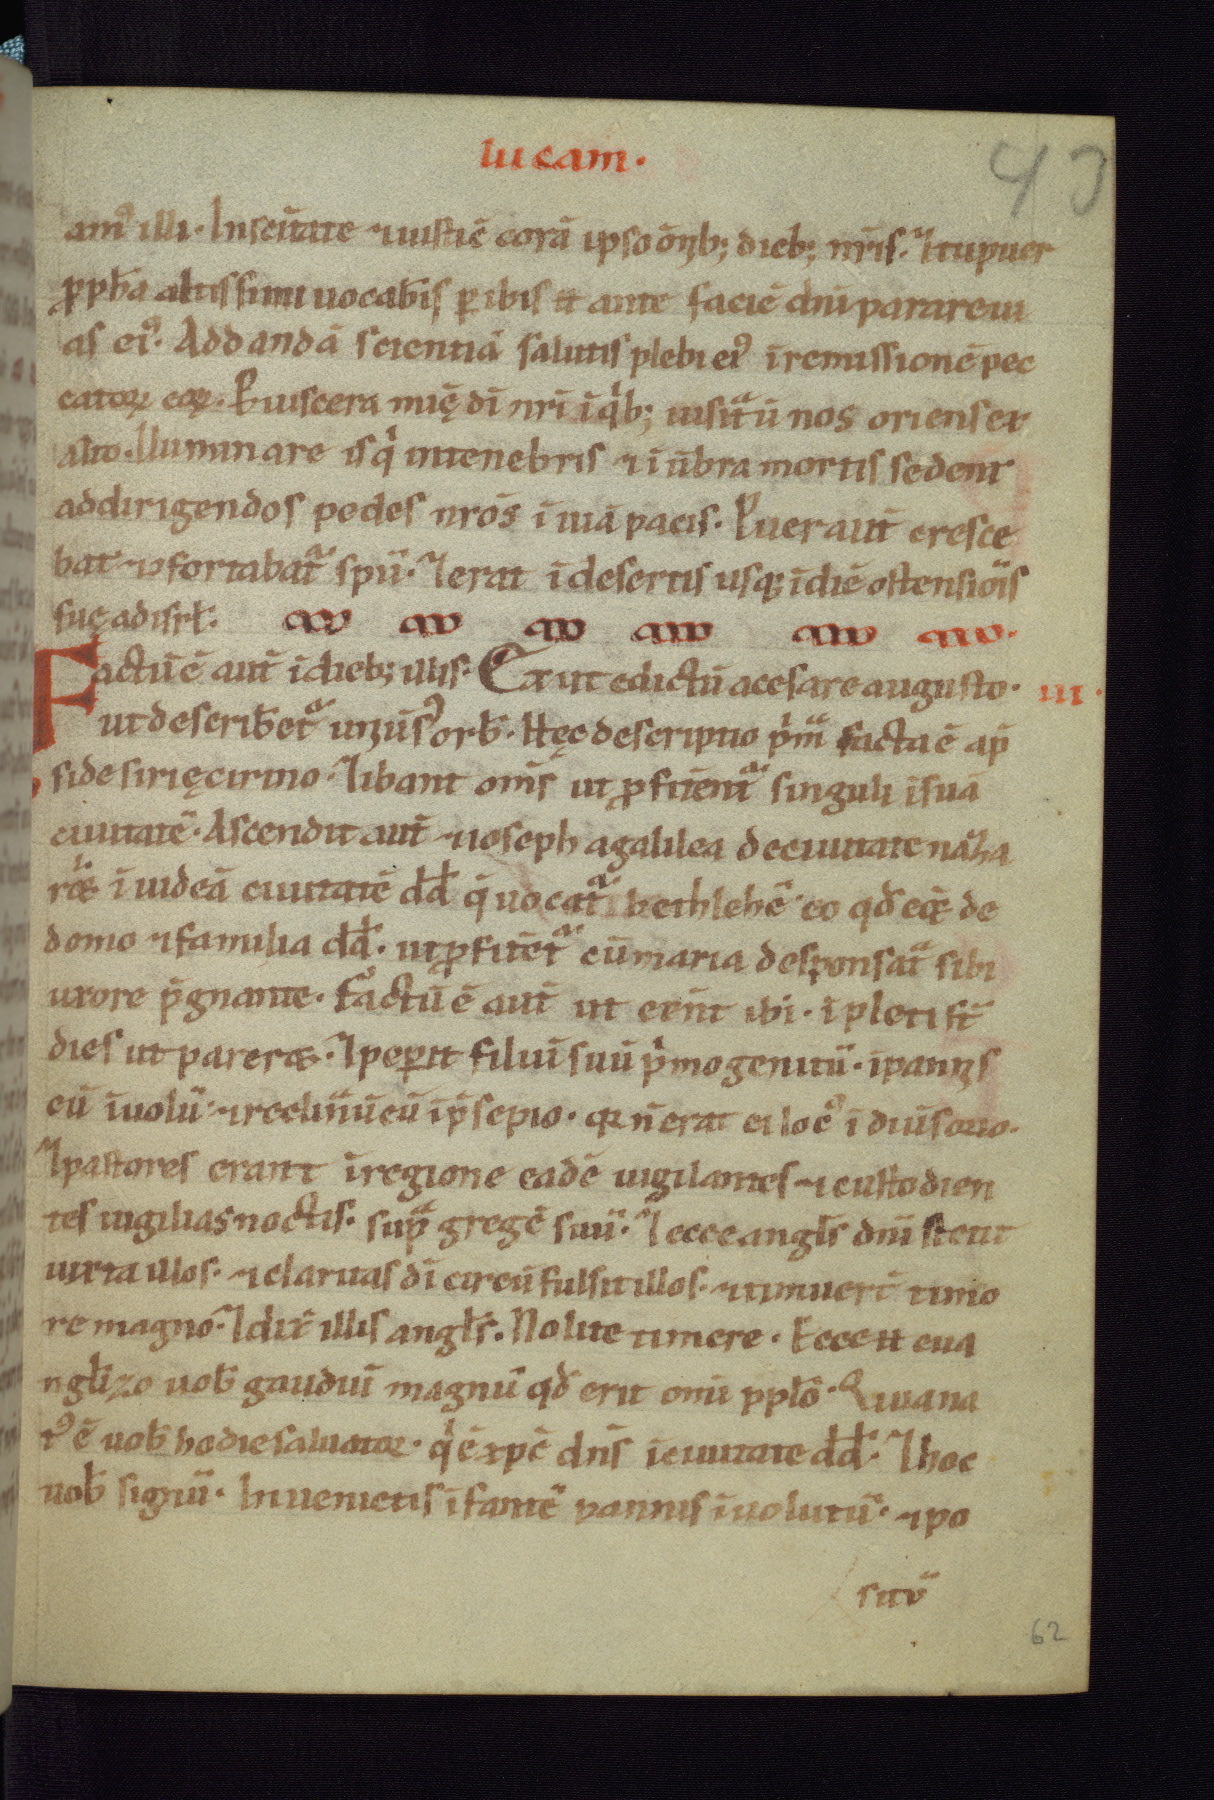 lucam.
43
am᷒ illi. In sc̄itate ⁊ iusticē corā ipso om̄ib; dieb; nr̄is. ⁊ tu puer
ꝓph̄a altissimi uocab̄is p̱ibis .n. ante faciē dn̄i parare ui
as ei᷒. Ad dandā scientiā salutis plebi ei᷒ ī remissionē pec
catoꝝ eoꝝ. P̱ uiscera mīę dī nr̄i ī qͥb; uisitaū nos oriens ex
alto. Iluminare isqͥ in tenebris ⁊ ī ūbra mortis sedent
ad dirigendos pedes nr̄os ī uiā pacis. Puer aūt cresce
bat ⁊ ꝯfortabat᷑ spū. ⁊ erat ī desertis usq; ī diē ostensiōis
suę ad isrl̄.
Factū ē aūt ī dieb; illis. Exiit edictū a cesare augusto. III.
ut describet᷑ uniūs᷒ orb̄. Hęc descriptio pͥmͣ facta ē ap̄
side sirię cirino. ⁊ ibant om̄s ut ꝓfitent᷑ singuli ī suā
ciuitatē. Ascendit aūt ⁊ ioseph a galilea de ciuitate naza
rꝫ ī iudeā ciuitatē dd̄ q̄ uocat᷑ bethleē eo qd̄ eēt de
domo ⁊ familia dd̄. ut ꝓfitet᷑ cū maria desponsata sibi
uxore p̄gnante. Factū ē aūt ut eēnt ibi. īpleti sr̄t
dies ut pareret. ⁊ pep̱it filiū suū pͥmogenitū. ⁊ pannis
eū īuoluͥ. ⁊ reclinauͥ eū ī p̄sepio. qꝛ n̄ erat ei loc᷒ ī diūsorio.
⁊ pastores erant ī regione eadē uigilantes ⁊ custodien
tes uigilias noctis. supͣ gregē suū. ⁊ ecce angl̄s dn̄i stetit
iuxta illos. ⁊ claritas dī circūfulsit illos. ⁊ timuer̄t timo
re magno. ⁊ dix̄ illis angl̄s. Nolite timere. Ecce .n. eua
ngl̄izo uob̄ gaudiū magnū qd̄ erit om̄i pplō. Quia na
t᷒ ē uob̄ hodie saluator. qͥ ē xp̄c dn̄s ī ciuitate dd̄. ⁊ hoc
uob̄ signū. Inuenietis īfantē pannis īuolutū. ⁊ po
sitū
62